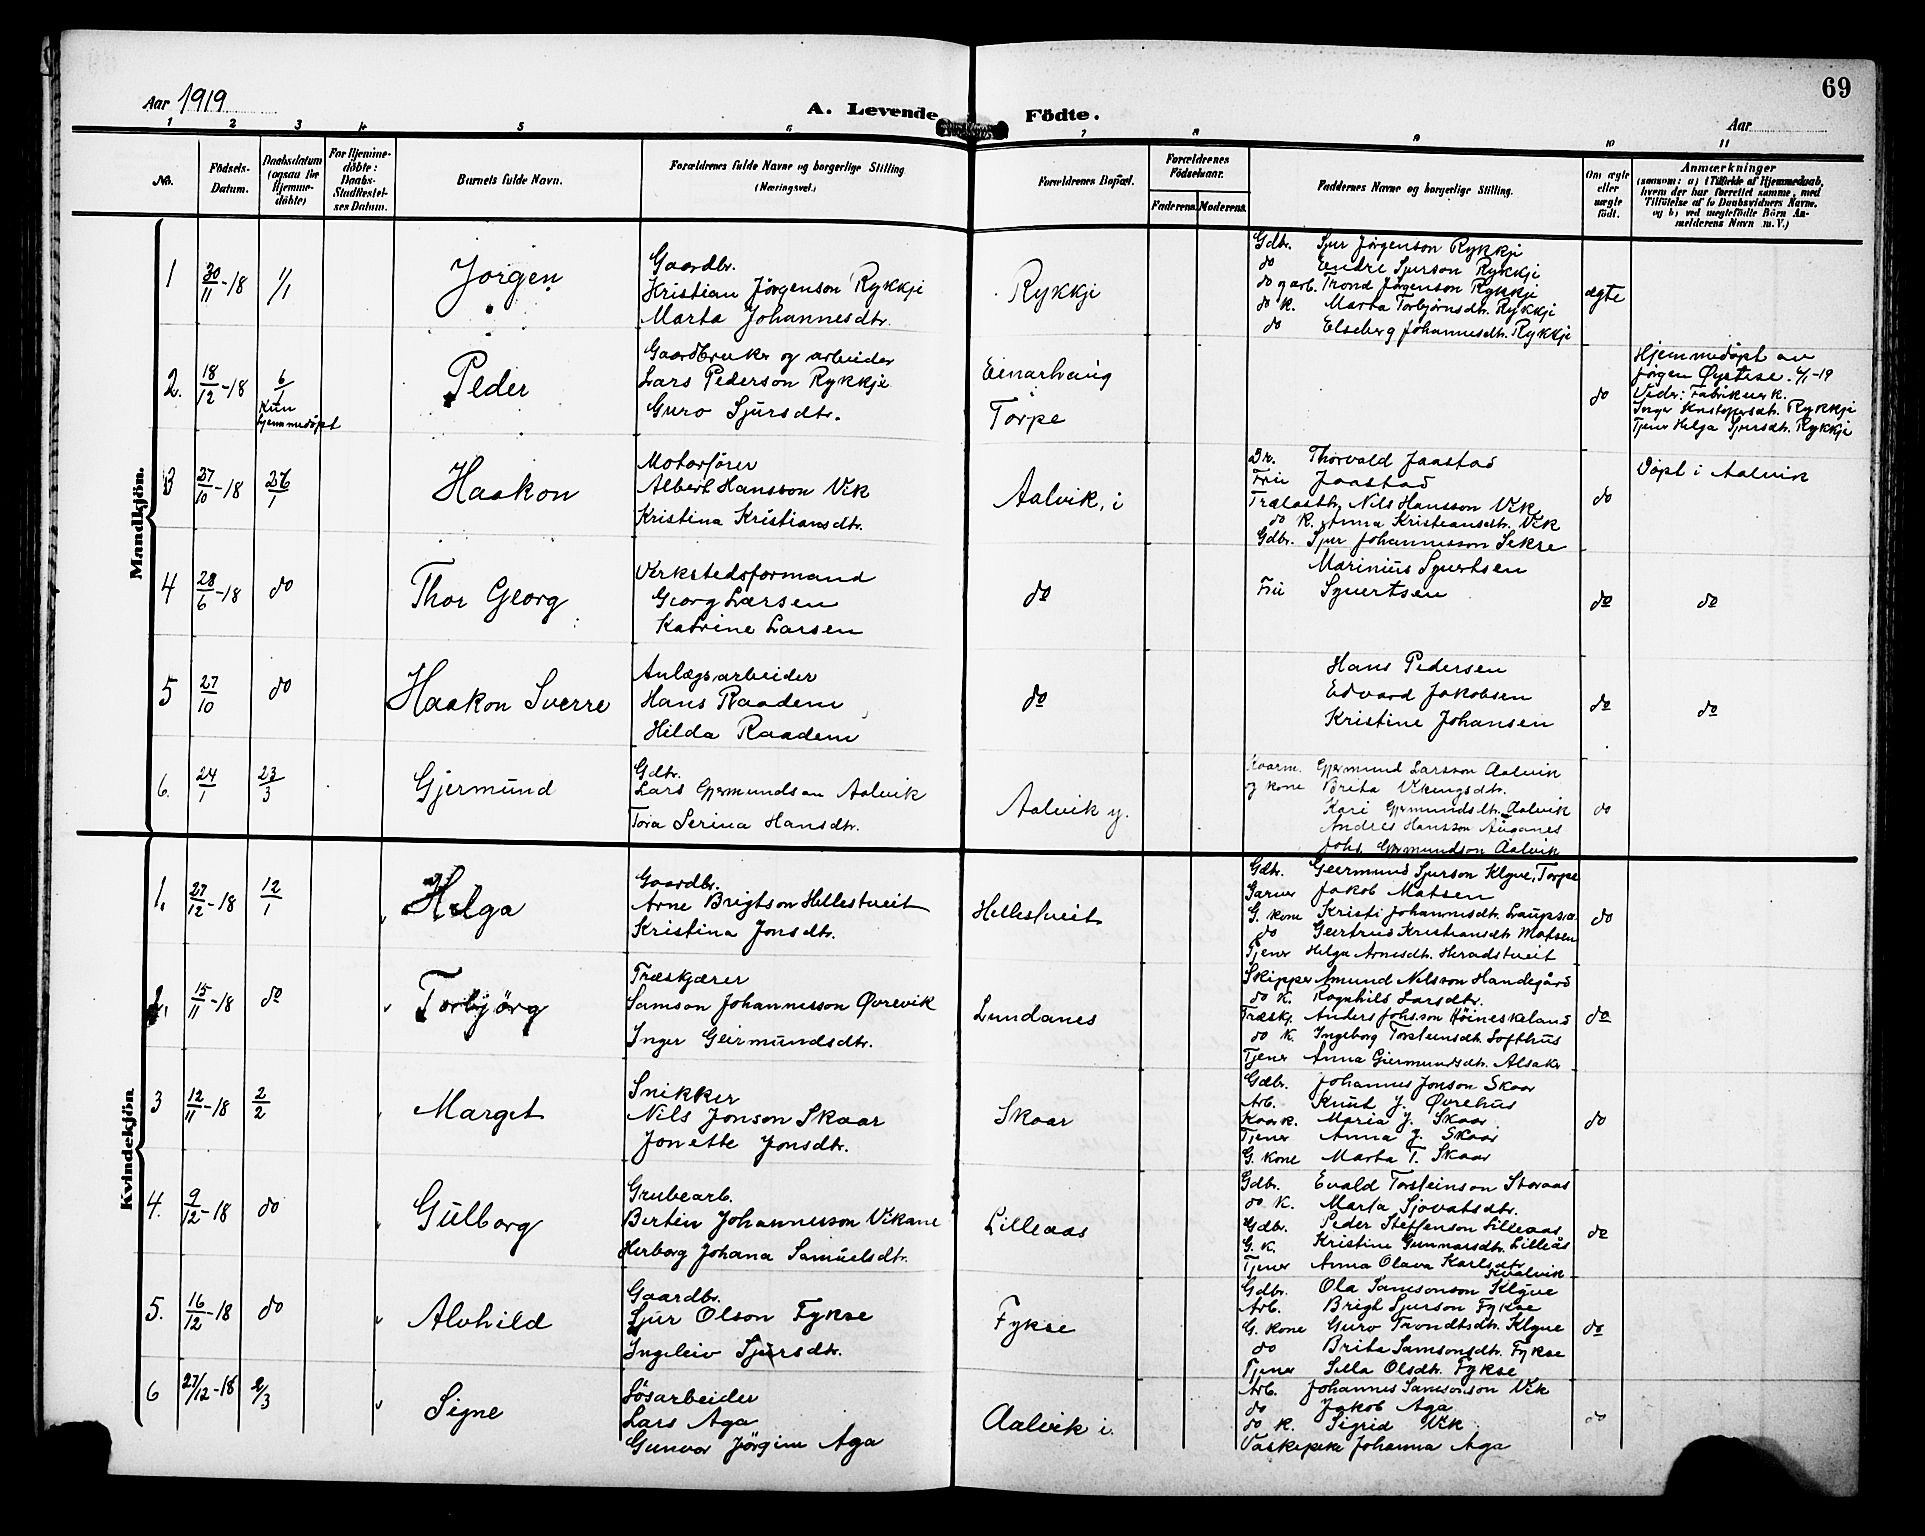 69
Aar 1919
A. Levende Födte.
Aar
1 2 3 4 5 6 7 8 9 10 11
No.
Födsels-Datum.
Daabsdatum (ogsaa for Hjemme-döbte)
For Hjemme-döbte: Daabs-Stadfæstel-ses Datum.
Barnets fulde Navn.
Forældrenes fulde Navne og borgerlige Stilling (Næringsvei.)
Forældrenes Bopæl.
Forældrenes Födselsaar.
Faderens. Moderens.
Faddernes Navne og borgerlige Stilling.
Om ægte eller uægte födt.
Anmærkninger
(saasom: a) i Tilfælde af Hjemmedaab,
hvem der har forrettet samme, med
Tilföielse af to Daabsvidners Navne.
og b) ved uægtefödte Börn An-
melderens Navn m. V.)
Mandkjön.
1 30/11-18 1/1 Jörgen
Gaardbr.
Kristian Jørgenson Rykkje
Marta Johannesdtr.
Rykkje
Gdbr. Sjur Jørgenson Rykkje
do Endre Sjurson Rykkje
do garb. Trond Jørgenson Rykkje
do K. Marta Torbjørnsdtr. Rykkje
do Elseberg Johannesdtr. Rykkje
ægte
2. 18/12-18 6/1 Kun hjemmedøpt
Peder
Gaardbruker og arbeider
Lars Pederson Rykkje
Guro Sjursdtr.
Einarhaug
Torpe
do
Hjemmedøpt av
Jørgen Øystese. 6/1-19
Vidr: Fabrikverk.
Inger Kristofersdtr. Rykkje
Tjener Helga Sjursdtr. Rykkje
3 27/10-18 26/1 Haakon
Motorfører
Albert Hansson Vik
Kristina Kristiansdtr.
Aalvik, i
Dr. Thorvald Jaastad
Fru Jaastad
Trælasthr. Nils Hansson Vik
do K. Anna Kristiansdtr. Vik
Gdbr. Sjur Johannesson Sekse
do
Døpt i Aalvik
4 28/6-18 do Thor Georg
Verkstedsformand
Georg Larsen
Katrine Larsen
do
Marinius Syvertsen
Fru Syvertsen
do do
5 27/10 do Haakon Sverre
Anlægsarbeider
Hans Raadem
Hilda Raadem
do
Hans Pedersen
Edvard Jakobsen
Kristine Johansen
do do
6. 24/1 23/3 Gjermund
Gdbr.
Lars Gjermundson Aalvik
Tora Serina Hansdtr.
Aalvik y.
Kaarm. Gjermund Larsson Aalvik
og kone Brita Vikingsdtr.
Kari Gjermundsdtr. Aalvik
Andres Hansson Auganes
Johs. Gjermundson Aalvik
do
Kvindekjön
1. 27/12-18 12/1 Helga
Gaardbr.
Arne Brigtson Hellestveit
Kristina Jonsdtr.
Hellestveit
Gdbr. Geermund Sjurson Klyve, Torpe
Garver Jakob Matsen
G. kone Kristi Johannesdtr. Laupsa
do Geertrud Kristiansdtr Matsen
Tjener Helga Arnesdtr. Heradstveit
do
2. 15/11-18 do Torbjörg
Træskjærer
Samson Johannesson Øvrevik
Inger Geirmundsdtr.
Lundanes
Skipper Amund Nilsson Handegård
do K. Ragnhild Larsdtr.
Træskj. Anders Johs.son Höineskeland
do K. Ingeborg Torsteinsdtr. Lofthus
Tjener Anna Giermundsdtr. Alsaker
do
3 12/11-18 2/2 Marget
Snikker
Nils Jonson Skaar
Jonette Jonsdtr.
Skaar
Gdbr. Johannes Jonson Skaar
Arb. Knut J. Øvrehus
Kaark. Maria J. Skaar
Tjener Anna J. Skaar
G. kone Marta T. Skaar
do
4. 9/12-18 do Gulborg
Grubearb.
Bertin Johannesson Vikane
Herborg Johana Samuelsdtr.
Lilleaas
Gdbr. Evald Torsteinson Storaas
do K. Marta Sjovatsdtr.
Gdbr. Peder Steffenson Lilleaas
G. K. Kristine Gunnarsdtr. Lilleås
Tjener Anna Olava Karlsdtr Kvalvik
do
5. 16/12-18 do Alvhild
Gaardbr.
Sjur Olson Fykse
Ingeleiv Sjursdtr.
Fykse
Gdbr. Ola Samsonson Klyve
Arb. Brigt Sjurson Fykse
G. kone Guro Trondtsdtr. Klyve
do Brita Samsonsdtr. Fykse
Tjener Silla Olsdtr. Fykse
do
6 27/12-18 2/3 Signe
Løsarbeider
Lars Aga
Gunvor Jörgine Aga
Aalvik i.
Arb. Johannes Samsonson Vik
do Jakob Aga
do K. Sigrid Vik
Vaskepike Johanna Aga
do